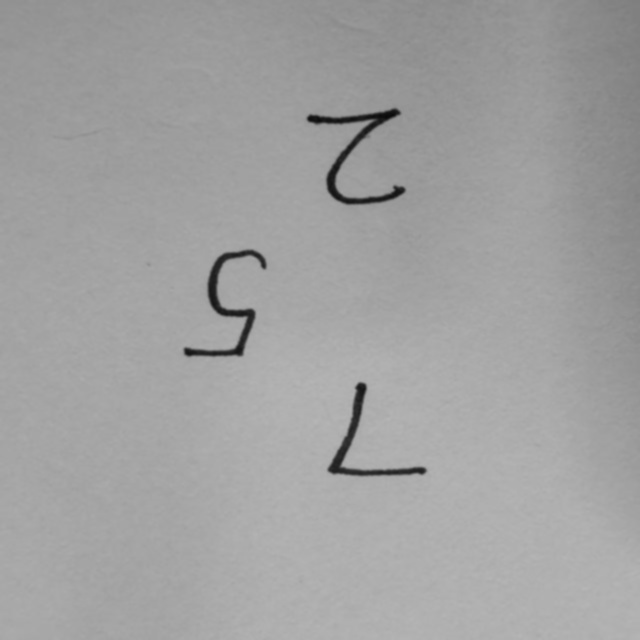 7
5
2